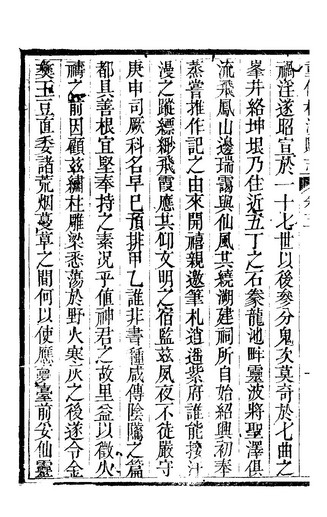 禍淫遂昭宣於一十七世以後參分鬼次莫奇於七曲之
峯井絡坤垠乃住近五丁之石拳龍池畔靈波將聖澤俱
流飛鳳山邊瑞靄與仙風其繞溯建祠所自始紹興初奉
蒸嘗推作記之由來開禧親邀筆札逍遙紫府誰能接汗
漫之蹤縹緲飛霞應其仰文明之宿監茲夙夜不徒嚴守
庚申司厥科名早已預排甲乙誰非書種咸傳陰隲之篇
都具善根宜堅奉持之素況乎值神君之故里益以徵火
禱之前因顧茲繡杜雕梁悉蕩於野火寒灰之後遂令金
奠玉豆直委諸荒烟蔓草之間何以使應夢臺前妥仙靈